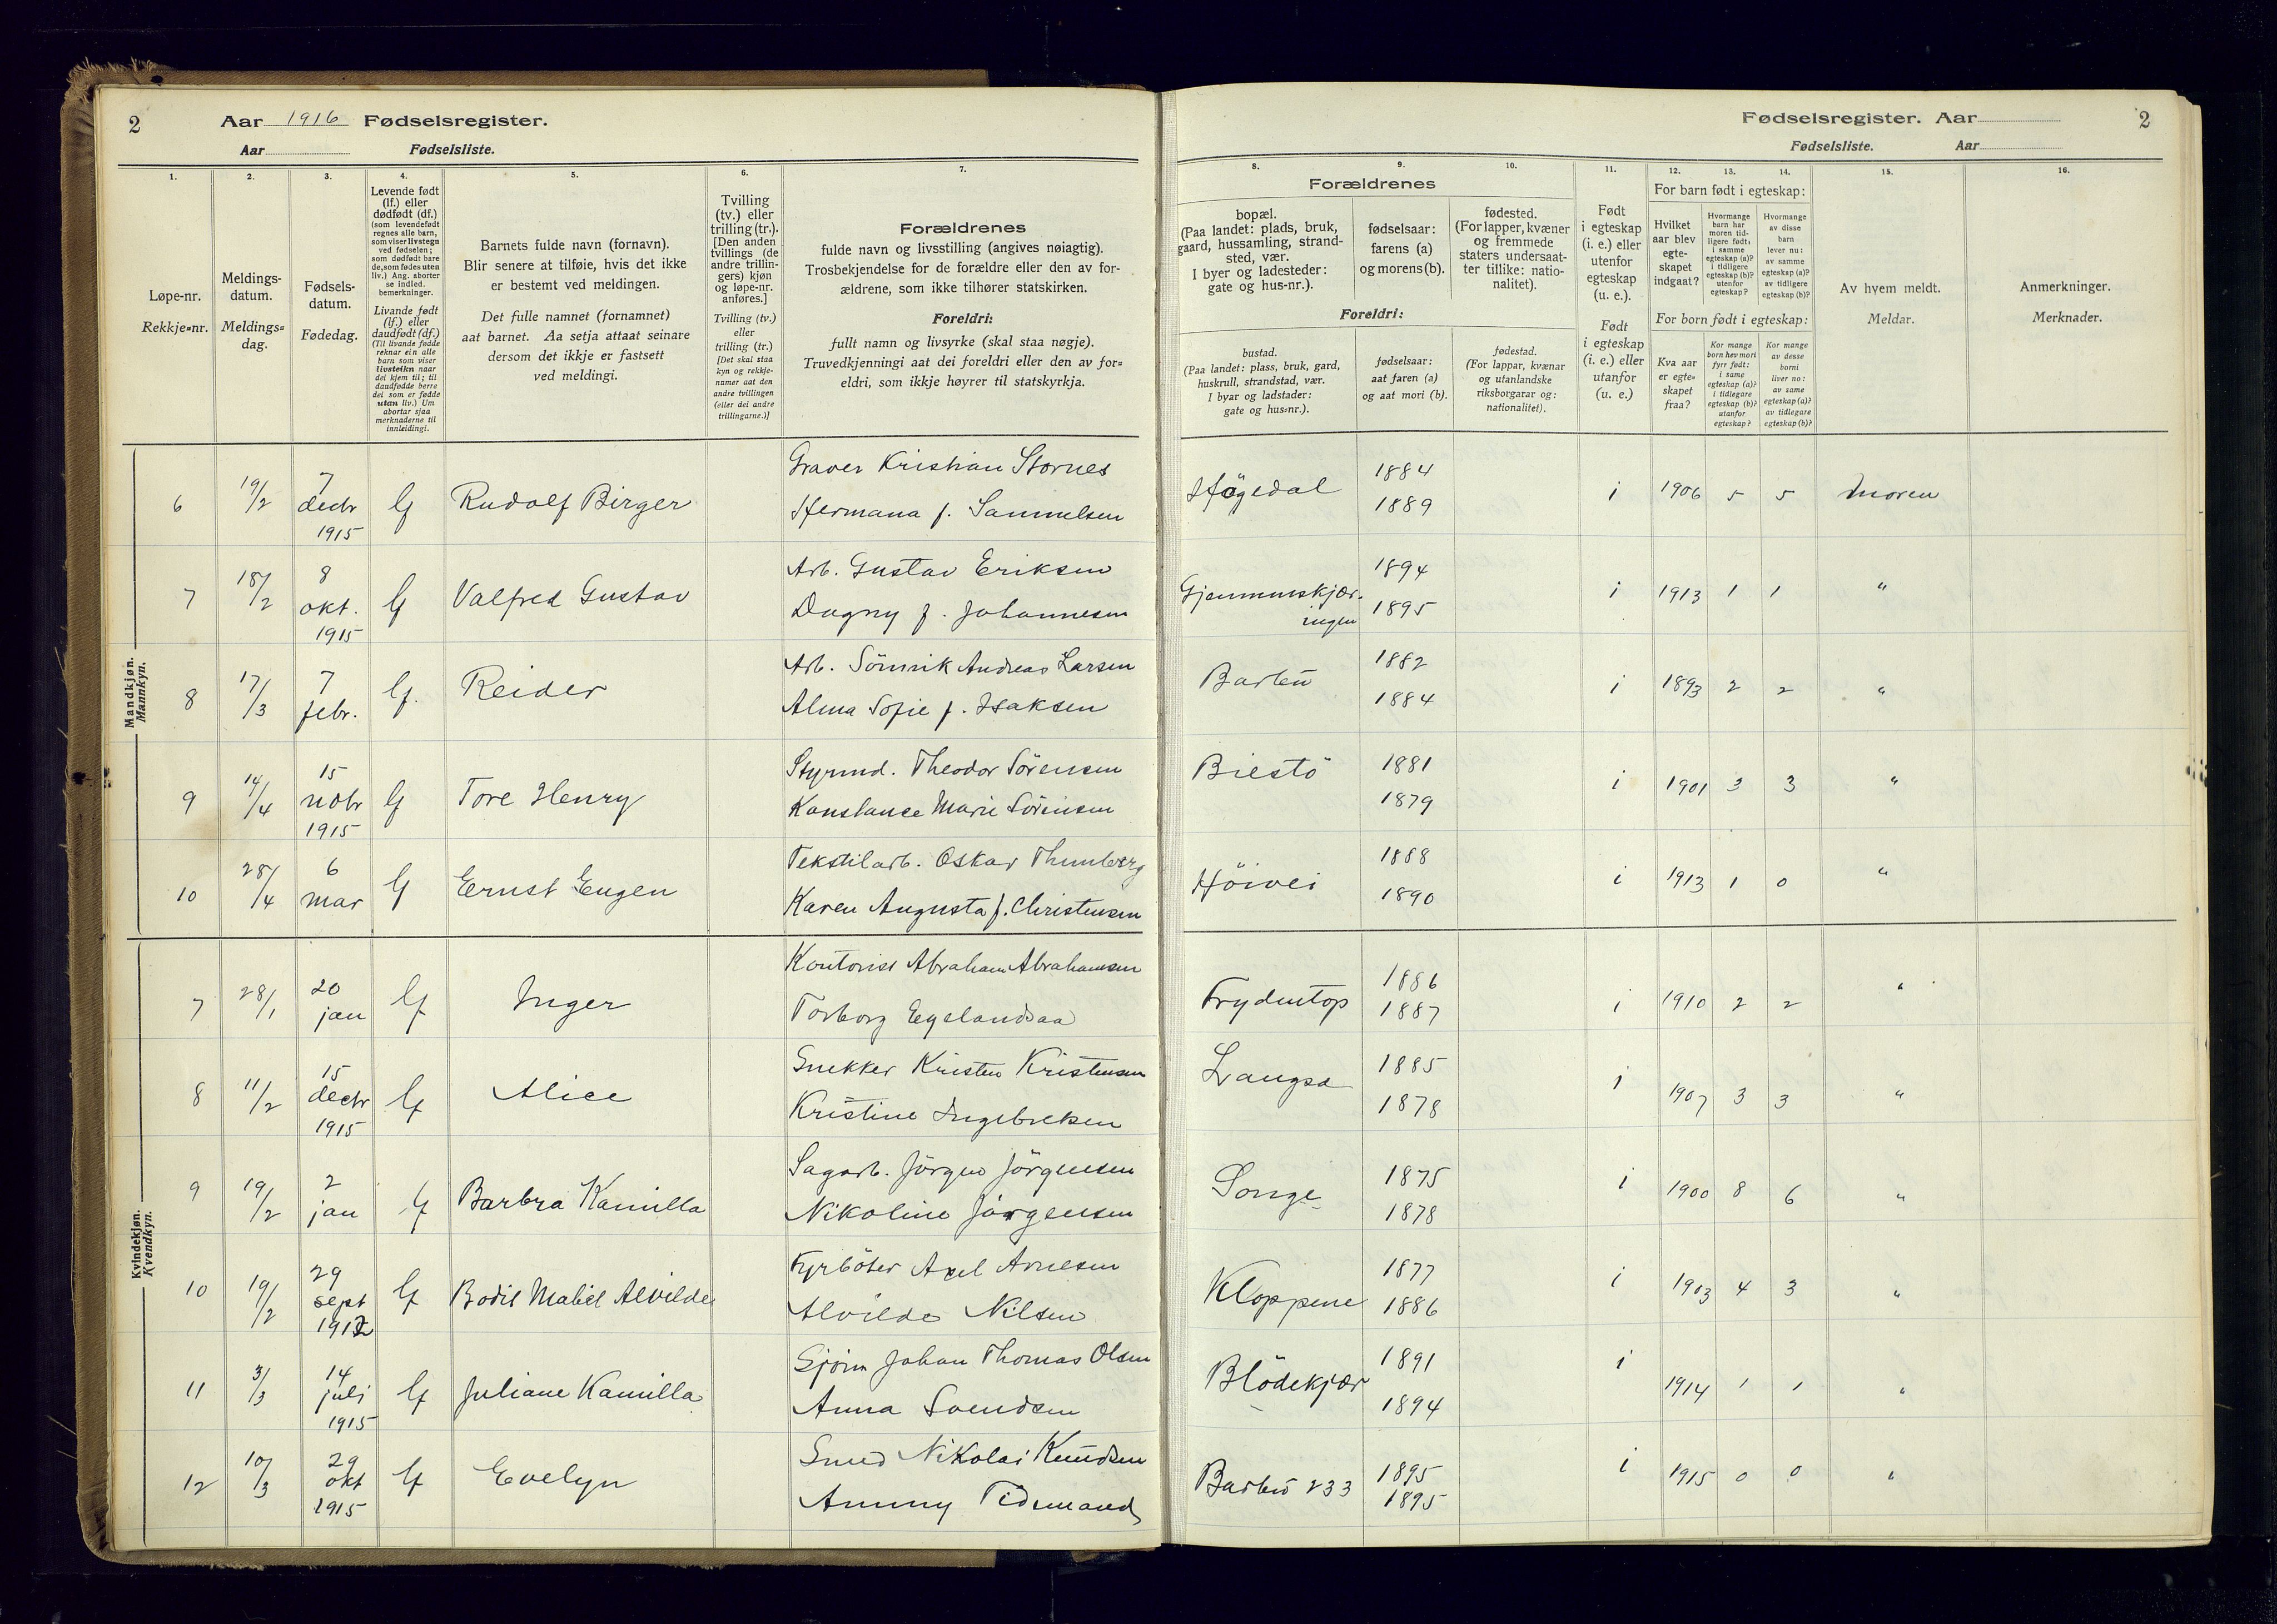 2
Aar 1916 Fødselsregister.
Aar Fødselsliste.
1.
2.
3.
4.
5.
6.
7.
Løpe-nr.
Rekkje=nr.
Meldings-
datum.
Meldings=
dag.
Fødsels-
datum.
Fødedag.
Levende født
(lf.) eller
dødfødt (df.)
(som levendefødt
regnes alle barn,
som viser livstegn
ved fødselen;
som dødfødt bare
de, som fødes uten
liv.) Ang. aborter
se indled.
bemerkninger.
Livande født
(lf.) eller
daudfødt (df.)
(Til livande fødde
reknar ein alle
barn som viser
livsteikn naar
dei kjem til; til
daudfødde berre
dei som er fødde
utan liv.) Um
abortar sjaa
merknaderne til
innleidingi.
Barnets fulde navn (fornavn).
Blir senere at tilføie, hvis det ikke
er bestemt ved meldingen.
Det fulle namnet (fornamnet)
aat barnet. Aa setja attaat seinare
dersom det ikkje er fastsett
ved meldingi.
Tvilling
(tv.) eller
trilling (tr.).
[Den anden
tvillings (de
andre trillin-
gers) kjøn
og løpe-nr.
anføres.]
Tvilling (tv.)
eller
trilling (tr.)
[Det skal staa
kyn og rekkje-
numer aat den
andre tvillingen
(eller dei andre
trillingarne.)]
Forældrenes
fulde navn og livsstilling (angives nøiagtig).
Trosbekjendelse for de forældre eller den av for-
ældrene, som ikke tilhører statskirken.
Foreldri:
fullt namn og livsyrke (skal staa nøgje).
Truvedkjenningi aat dei foreldri eller den av for=
eldri, som ikkje høyrer til statskyrkja.
Mandkjøn.
Mannkyn.
6 19/2 7 decbr 1915 lf Rudolf Birger
Graver Kristian Stornes
Hermana f. Samuelsen
7 18/2 8 okt. 1915 lf Valfred Gustav
Arb. Gustav Eriksen
Dagny f. Johannesen
8 17/3 7 febr. lf. Reider
Arb. Sönnik Andreas Larsen
Alma Sofie f. Isaksen
9 14/4 15 nobr 1915 lf Tore Henry
Styrmd. Theodor Sörensen
Konstanse Marie Sörensen
10 28/4 6 mar lf Ernst Eugen
Tekstilarb. Oskar Thunberg
Karen Augusta f. Christensen
Kvindekjøn.
Kvendkyn.
7 28/1 20 jan lf Inger
Kontorist Abraham Abrahamsen
Torborg Egelandsaa
8 11/2 15 decbr 1915 lf Alice
Snekker Kristen Kristensen
Kristine Ingebretsen
9 19/2 2 jan lf Barbra Kamilla
Sagarb. Jörgen Jörgensen
Nikoline Jörgensen
10 19/2 29 sept 1912 lf Bodil Mabel Alvilde
Fyrböter Axel Arnesen
Alvilde Nilsen
11 3/3 14 juli 1915 lf Juliane Kamilla
Sjöm Johan Thomas Olsen
Anna Svendsen
12 10/3 29 okt 1915 lf Evelyn
Smed Nikolai Knudsen
Ammy Tidemand
Fødselsregister. Aar 2
Fødselsliste. Aar
8.
9.
10.
11.
12.
13.
14.
15.
16.
Forældrenes
bopæl.
(Paa landet: plads, bruk,
gaard, hussamling, strand-
sted, vær.
I byer og ladesteder:
gate og hus-nr.).
fødselsaar:
farens (a)
og morens (b).
fødested.
(For lapper, kvæner
og fremmede
staters undersaat-
ter tillike: natio-
nalitet).
Foreldri:
bustad.
(Paa landet: plass, bruk, gard,
huskrull, strandstad, vær.
I byar og ladstader:
gate og hus=nr.).
fødselsaar:
aat faren (a)
og aat mori (b).
fødestad.
(For lappar, kvænar
og utanlandske
riksborgarar og:
nationalitet).
Født
i egteskap
(i. e.) eller
utenfor
egteskap
(u. e.).
Født
i egteskap
(i. e.) eller
utanfor
(u. e.)
For barn født i egteskap:
Hvilket
aar blev
egte-
skapet
indgaat?
Hvormange
barn har
moren tid-
ligere født:
i samme
egteskap (a)?
i tidligere
egteskap (b)?
utenfor
egteskap?
Hvormange
av disse
barn
lever nu:
av samme
egteskap (a)?
av tidligere
egteskap (b)?
For born født i egteskap:
Kva aar
er egte=
skapet
fraa?
Kor mange
born hev mori
fyrr født:
i same
egteskap (a)?
i tidlegare
egteskap (b)?
utanfor
egteskap?
Kor mange
av desse
borni
liver no:
av same
egteskap (a)?
av tidlegare
egteskap (b)?
Av hvem meldt.
Meldar.
Anmerkninger.
Merknader.
Högedal 1884 1889 i 1906 5 5 Moren
Gjennumskjær-
ingen 1894 1895 i 1913 1 1 "
Barbu 1882 1884 i 1893 2 2 "
Biestö 1881 1879 i 1901 3 3 "
Höivei 1888 1890 i 1913 1 0 "
Frydentop 1886 1887 i 1910 2 2 "
Langsæ 1885 1878 i 1907 3 3 "
Songe 1875 1878 i 1900 8 6 "
Kloppene 1877 1886 i 1903 4 3 "
Blödekjær 1891 1894 i 1914 1 1 "
Barbu 233 1895 1895 i 1915 0 0 "